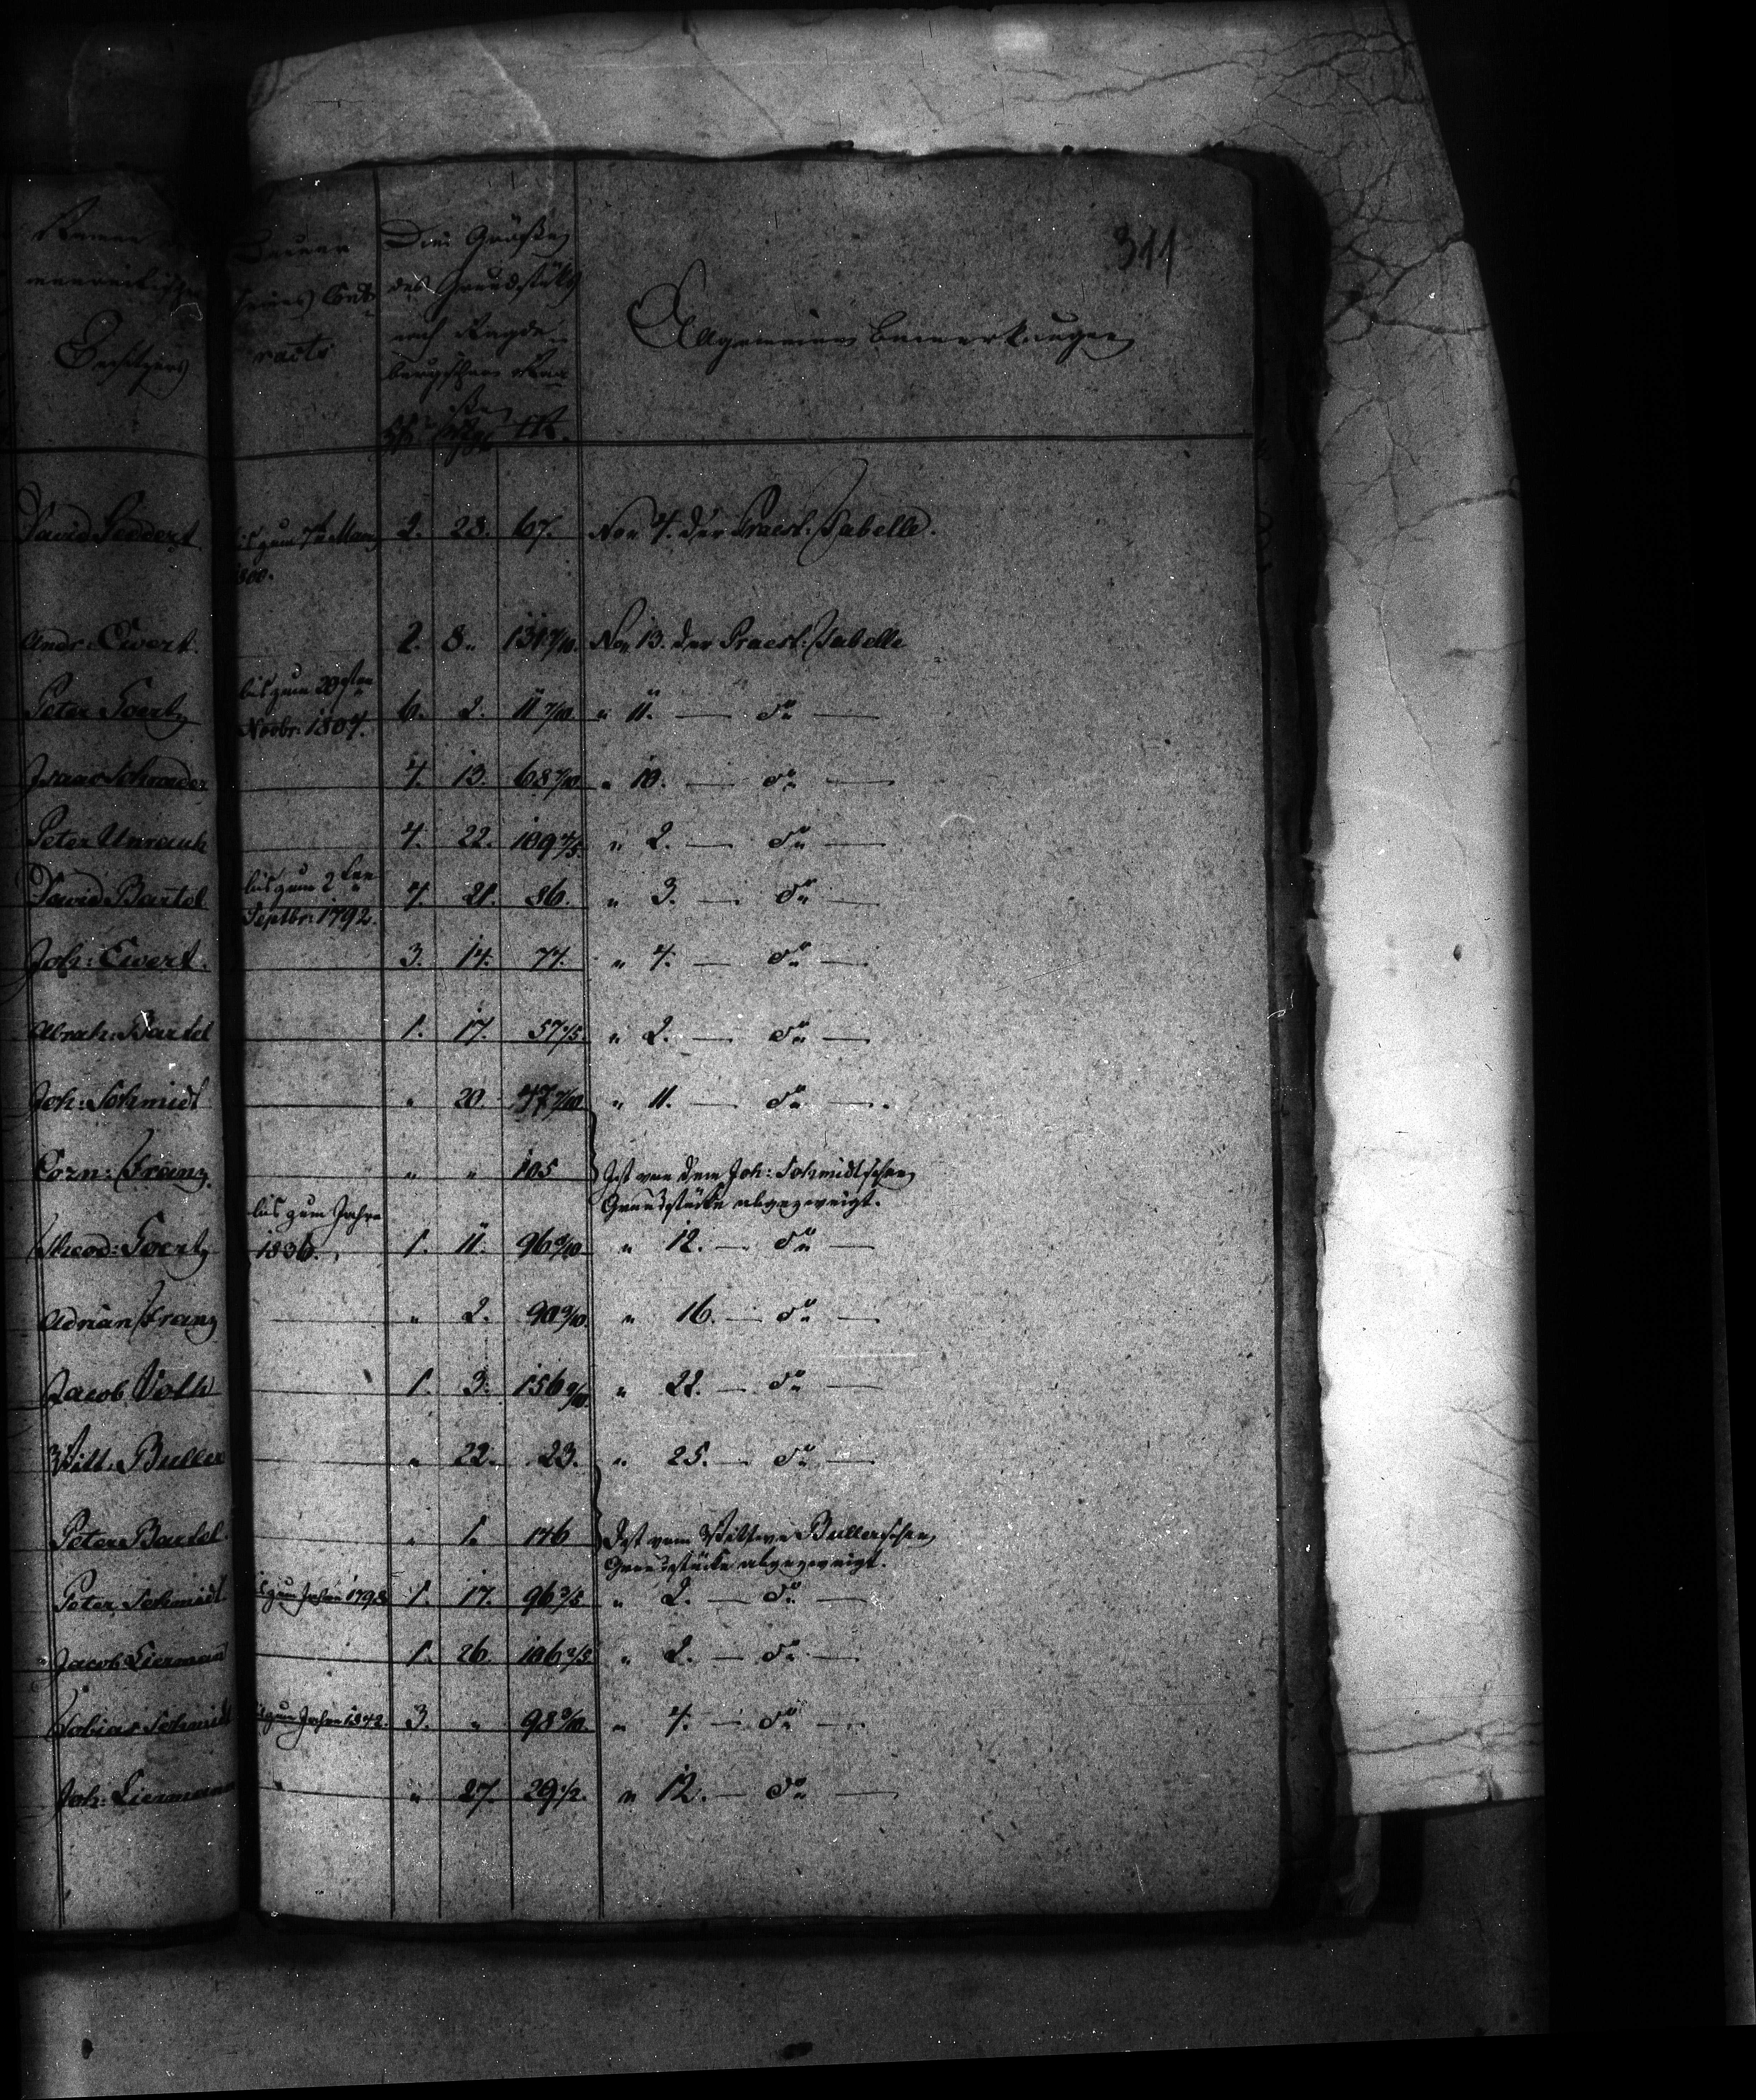 311
Namen des
Besitzers
Dauer
seines Cont-
racts
Die Größe
des Grundstücks
nach Magde-
burgschen Maa-
ße
Allgemeine Bemerkungen
David Goddert. bis zum 7t May 2. 23. 67. No 4. der Praest. Tabelle.
1800.
Andr: Ewert. 2. 8. 131 7/10. No 13. der Praest. Tabelle
bis zum 29sten
Peter Goertz Novbr: 1807. 6. 2. 11 7/10. " 11. — do —
Isaac Schroeder 4. 13. 68 7/10. " 10. — do —
Peter Unrauh 4. 22. 109 4/5. " 2. — do —
David Bartel bis zum 2ten 4. 21. 86. " 3. — do —
Septbr: 1792.
Joh: Ewert. 3. 14. 74. " 4. — do —
Abrah: Bartel 1. 17. 57 1/5. " 2. — do —
Joh: Schmidt " 20. 47 7/10 " 11. — do —
Corn: Franz. " " 105 Ist von dem Joh: Schmidtschen
Grundstücke abgezweigt.
bis zum Jahre
Theod: Goertz 1836. 1. 11. 96 9/10 " 12. — do —
Adrian Franz " 2. 90 9/10. " 16. — do —
Jacob Voth 1. 3. 156 9/10. " 22. — do —
Witt. Buller " 22. 23. " 25. — do —
Peter Bartel. " 1. 146 Ist vom Wittwe Bullerschen
Grundstücke abgezweigt.
Peter Schmidt. bis zum Jahre 1798 1. 17. 96 3/5 " 2. — do —
Jacob Liermann 1. 26. 106 2/5 " 2. — do —
Tobias Schmidt bis zum Jahre 1842. 3. " 98 3/10. " 4. — do —
Joh: Liermann " 27. 29 1/2. " 12. — do —